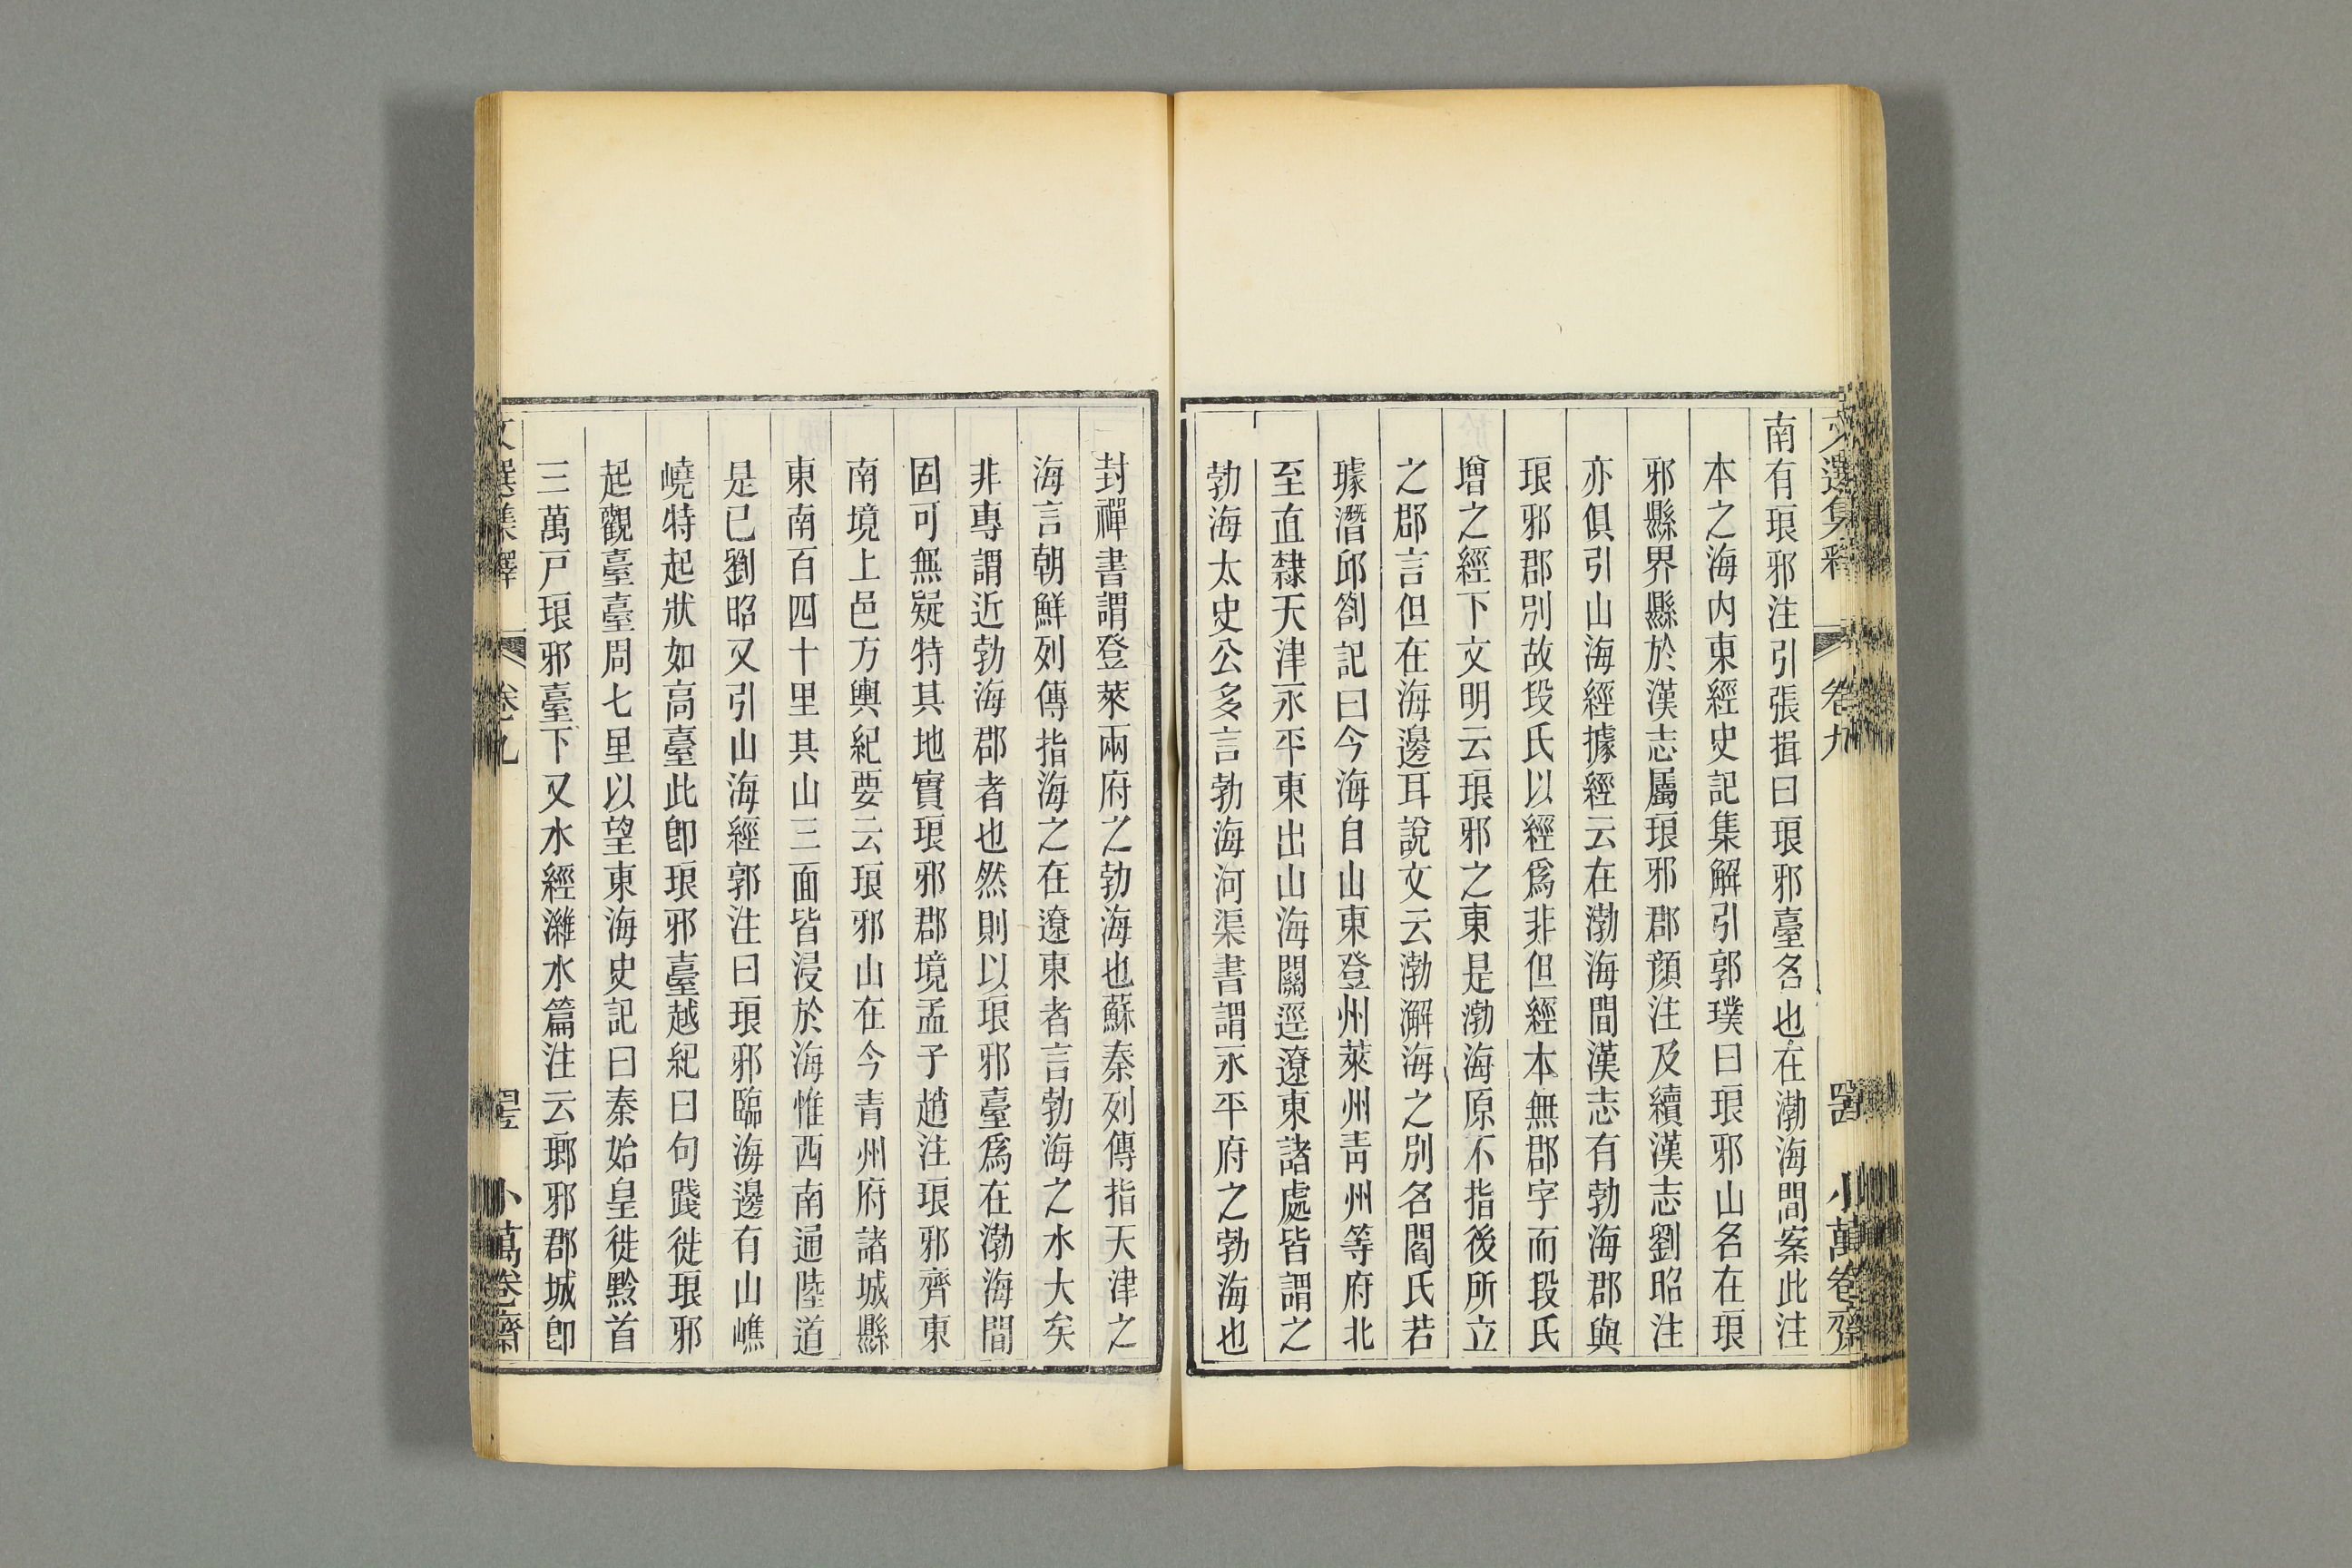 文選集釋 卷九 罕 小萬卷齋
南有琅邪注引張揖曰琅邪臺名也在渤海間案此注
本之海內東經史記集解引郭璞曰琅邪山名在琅
邪縣界縣於漢志屬琅邪郡顏注及續漢志劉昭注
亦俱引山海經據經云在渤海間漢志有勃海郡與
琅邪郡別故段氏以經爲非但經本無郡字而段氏
增之經下文明云琅邪之東是渤海原不指後所立
之郡言但在海邊耳說文云渤澥海之別名閻氏若
璩潛邱劄記曰今海自山東登州萊州靑州等府北
至直隸天津永平東出山海關逕遼東諸處皆謂之
勃海太史公多言勃海河渠書謂永平府之勃海也
封禪書謂登萊兩府之勃海也蘇秦列傳指天津之
海言朝鮮列傳指海之在遼東者言勃海之水大矣
非專謂近勃海郡者也然則以琅邪臺爲在渤海間
固可無疑特其地實琅邪郡境孟子趙注琅邪齊東
南境上邑方輿紀要云琅邪山在今青州府諸城縣
東南百四十里其山三面皆浸於海惟西南通陸道
是已劉昭又引山海經郭注曰琅邪臨海邊有山嶕
嶢特起狀如高臺此卽琅邪臺越紀曰句踐徙琅邪
起觀臺臺周七里以望東海史記曰秦始皇徙黔首
三萬戸琅邪臺下又水經濰水篇注云瑯邪郡城卽
文選集釋 卷九 小萬卷齋